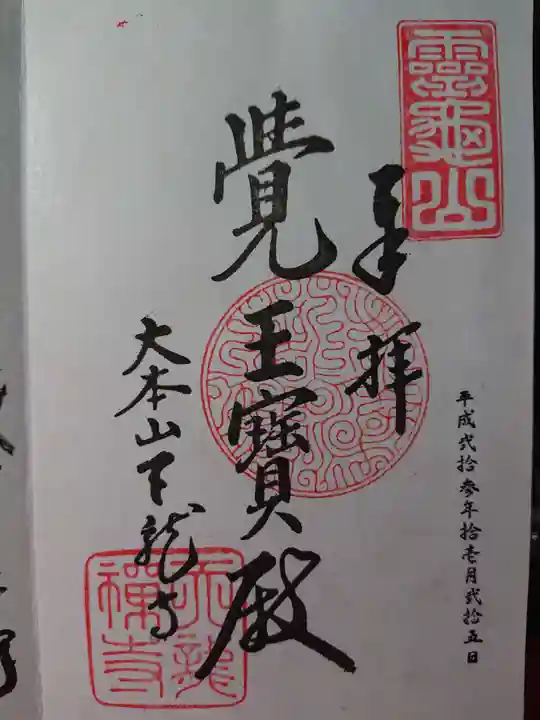 靈龜山
平成弐拾参年拾壱月弐拾五日
奉拝
覺王寶殿
大本山天龍寺
天龍
禪寺